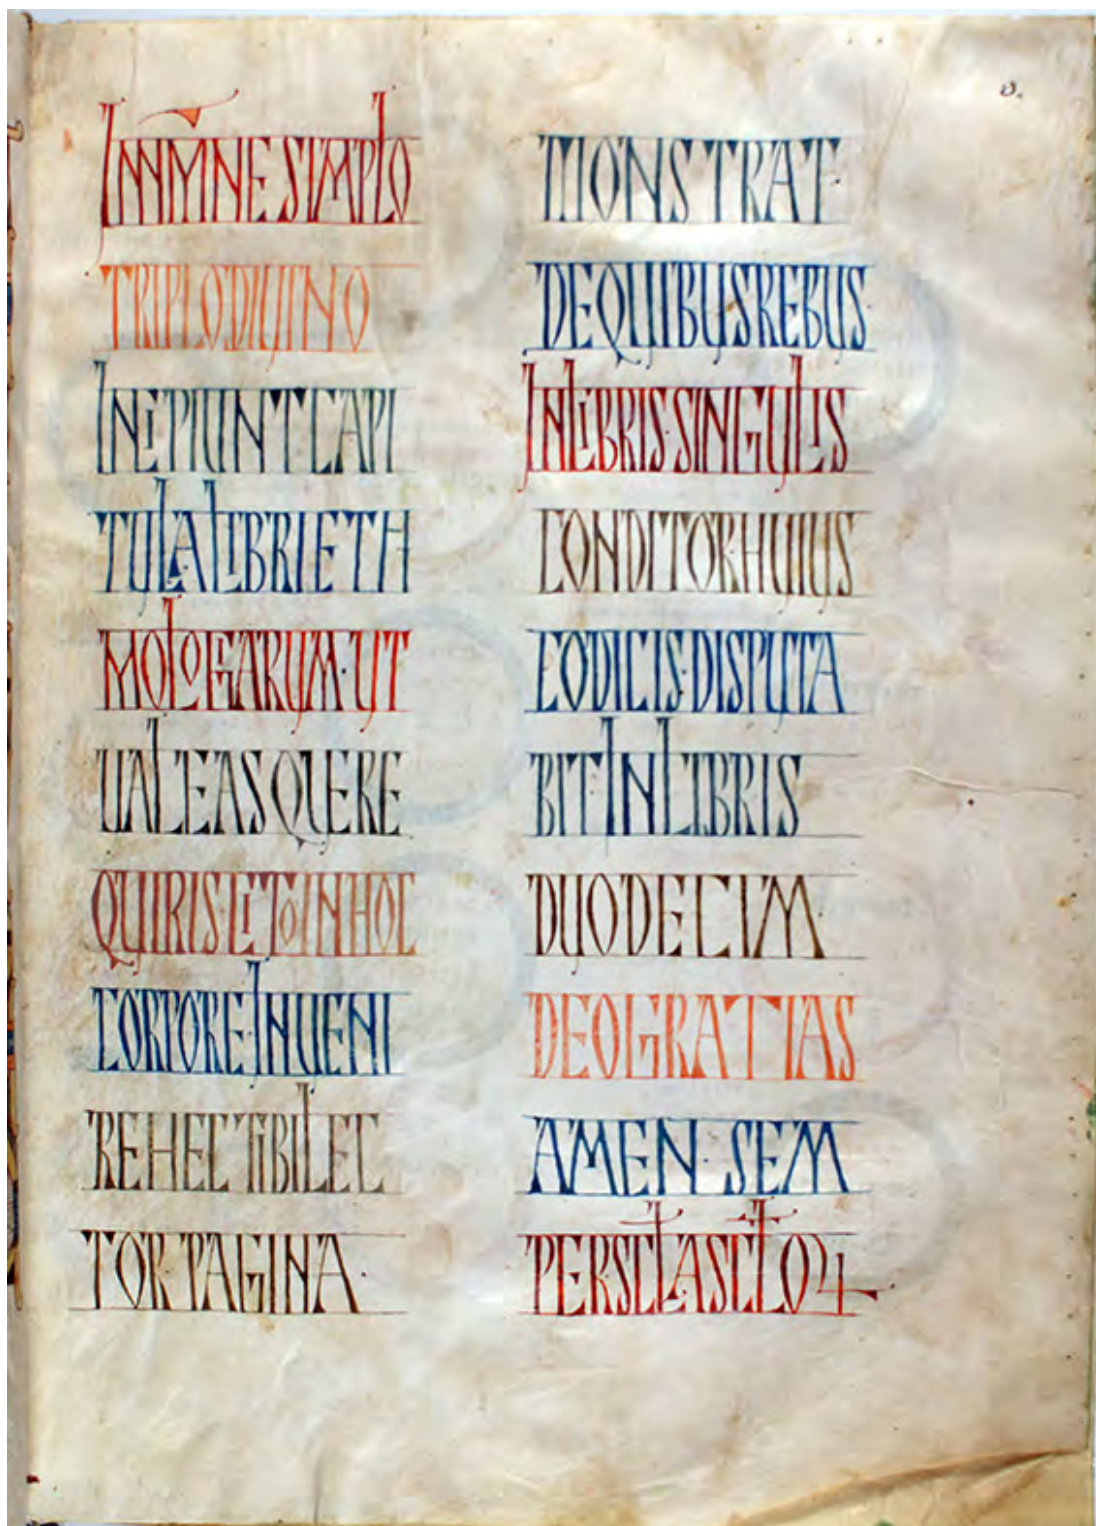 IN NMNE SIMPLO
TRIPLO DIUINO
INCIPIUNT CAPI
TULA LIBRI ET H
MOLOGIARUM · UT
UALEAS QUERE
QUIRIS · CITO IN HOC
CORPORE · INUENI
RE HEC TIBI LEC
TOR PAGINA ·
MONSTRAT ·
DE QUIBUS REBUS ·
IN LIBRIS SINGULIS
CONDITOR HUIUS
CODICIS · DISPUTA
BIT · IN LIBRIS
DUODECIM ·
DEO GRATIAS
AMEN · SEM
PER · SCLA SCLO